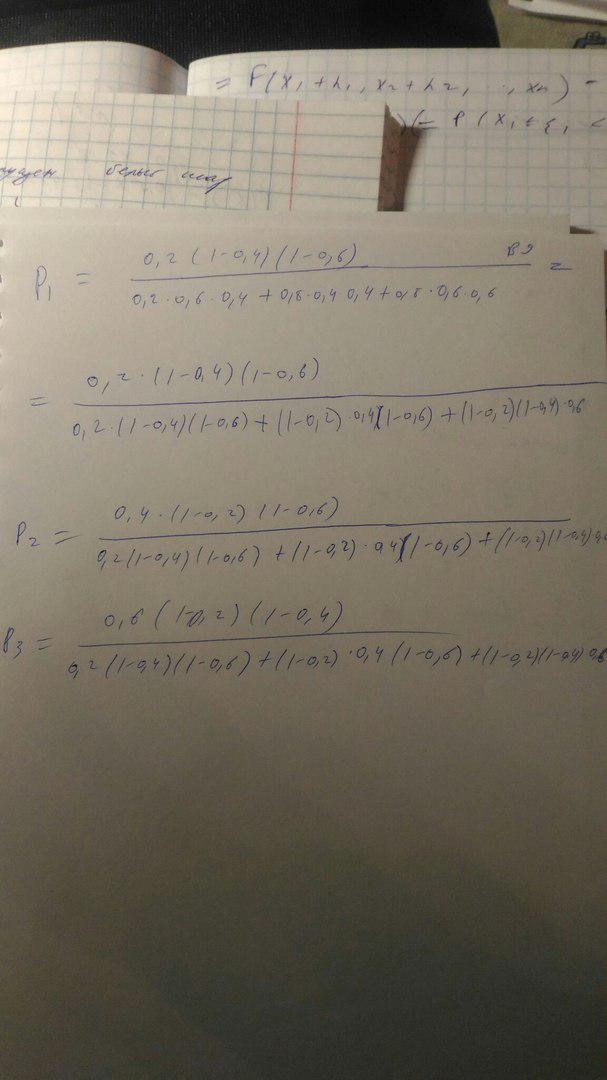 = F(x₁ + h₁, x₂ + h₂, ..., xₙ) -
белый шар
P₁ = 0,2 (1-0,4)(1-0,6) / 0,2·0,6·0,4 + 0,8·0,4·0,4 + 0,8·0,6·0,6 =
= 0,2·(1-0,4)(1-0,6) / 0,2·(1-0,4)(1-0,6) + (1-0,2)·0,4(1-0,6) + (1-0,2)(1-0,4)·0,6
P₂ = 0,4·(1-0,2)(1-0,6) / 0,2(1-0,4)(1-0,6) + (1-0,2)·0,4(1-0,6) + (1-0,2)(1-0,4)0,6
P₃ = 0,6(1-0,2)(1-0,4) / 0,2(1-0,4)(1-0,6) + (1-0,2)·0,4(1-0,6) + (1-0,2)(1-0,4)0,6